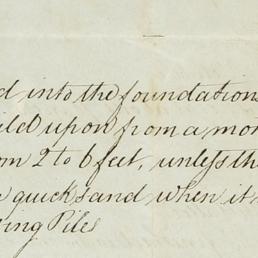 d into the foundations
ild upon from a mo
om 2 to 6 feet, unless th
quicksand when it
ing Piles